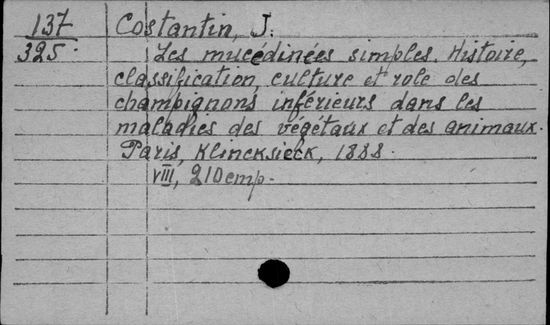 137 Costantin, J.
325. Les mucédinées simples. Histoire,
classification, culture et role des
champignons inférieurs dans les
maladies des végétaux et des animaux.
Paris, Klincksieck, 1888.
VIII, 210 стр.